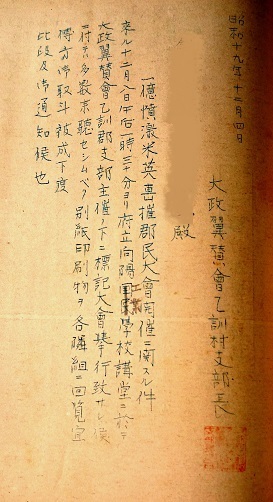 昭和十九年十二月四日
大政翼賛會乙訓村支部長
殿
一億憤激米英撃摧郡民大會開催ニ關スル件
來ル十二月八日午后一時三十分ヨリ府立向陽工業學校講堂ニ於テ
大政翼賛會乙訓郡支部主催ノ下ニ標記大會擧行致サレ候
ニ付テハ多數京聽セシムベク別紙印刷物ヲ各隣組ニ回覧宜
傳方御取斗被成下度
此段及御通知候也